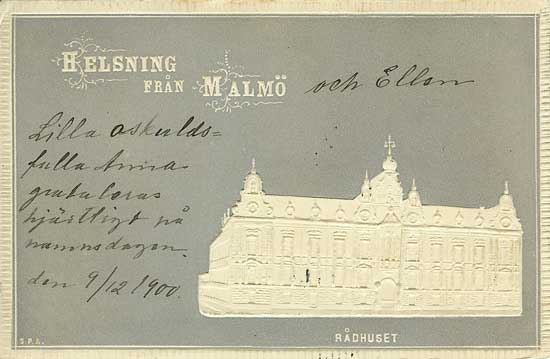 HELSNING
FRÅN MALMÖ
och Ellen
Lilla oskulds=
fulla Anna
gratuleras
hjärtligt på
namnsdagen.
den 9/12 1900.
RÅDHUSET
S.P.A.